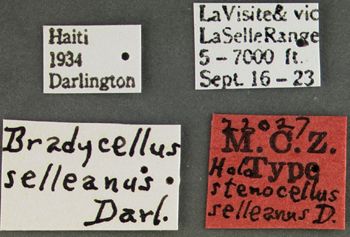 Haiti
1934
Darlington
LaVisite& vic
LaSelleRange
5-7000 ft.
Sept. 16-23
Bradycellus
selleanus.
Darl.
M.C.Z.
Type
stenocellus
selleanus D.